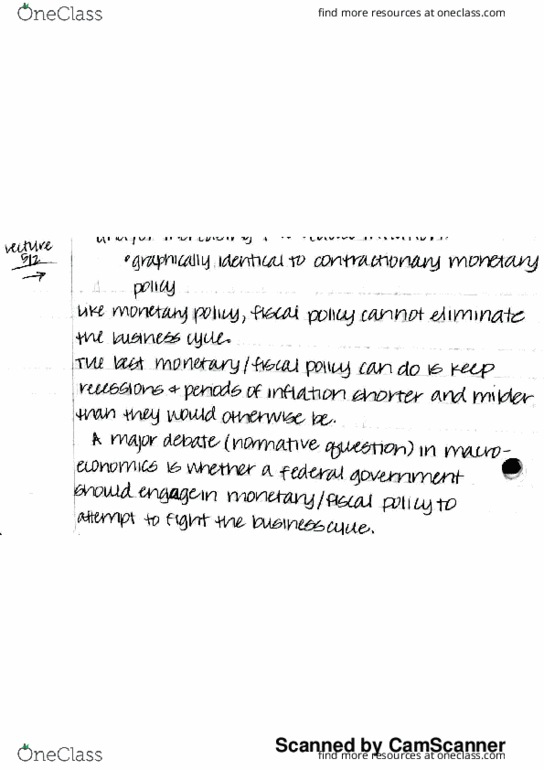 OneClass
find more resources at oneclass.com
lecture
5/2
•graphically identical to contractionary monetary
policy
like monetary policy, fiscal policy cannot eliminate
the business cycle.
The best monetary/fiscal policy can do is keep
recessions + periods of inflation shorter and milder
than they would otherwise be.
A major debate (normative question) in macro-
economics is whether a federal government
should engage in monetary/fiscal policy to
attempt to fight the business cycle.
Scanned by CamScanner
OneClass
find more resources at oneclass.com